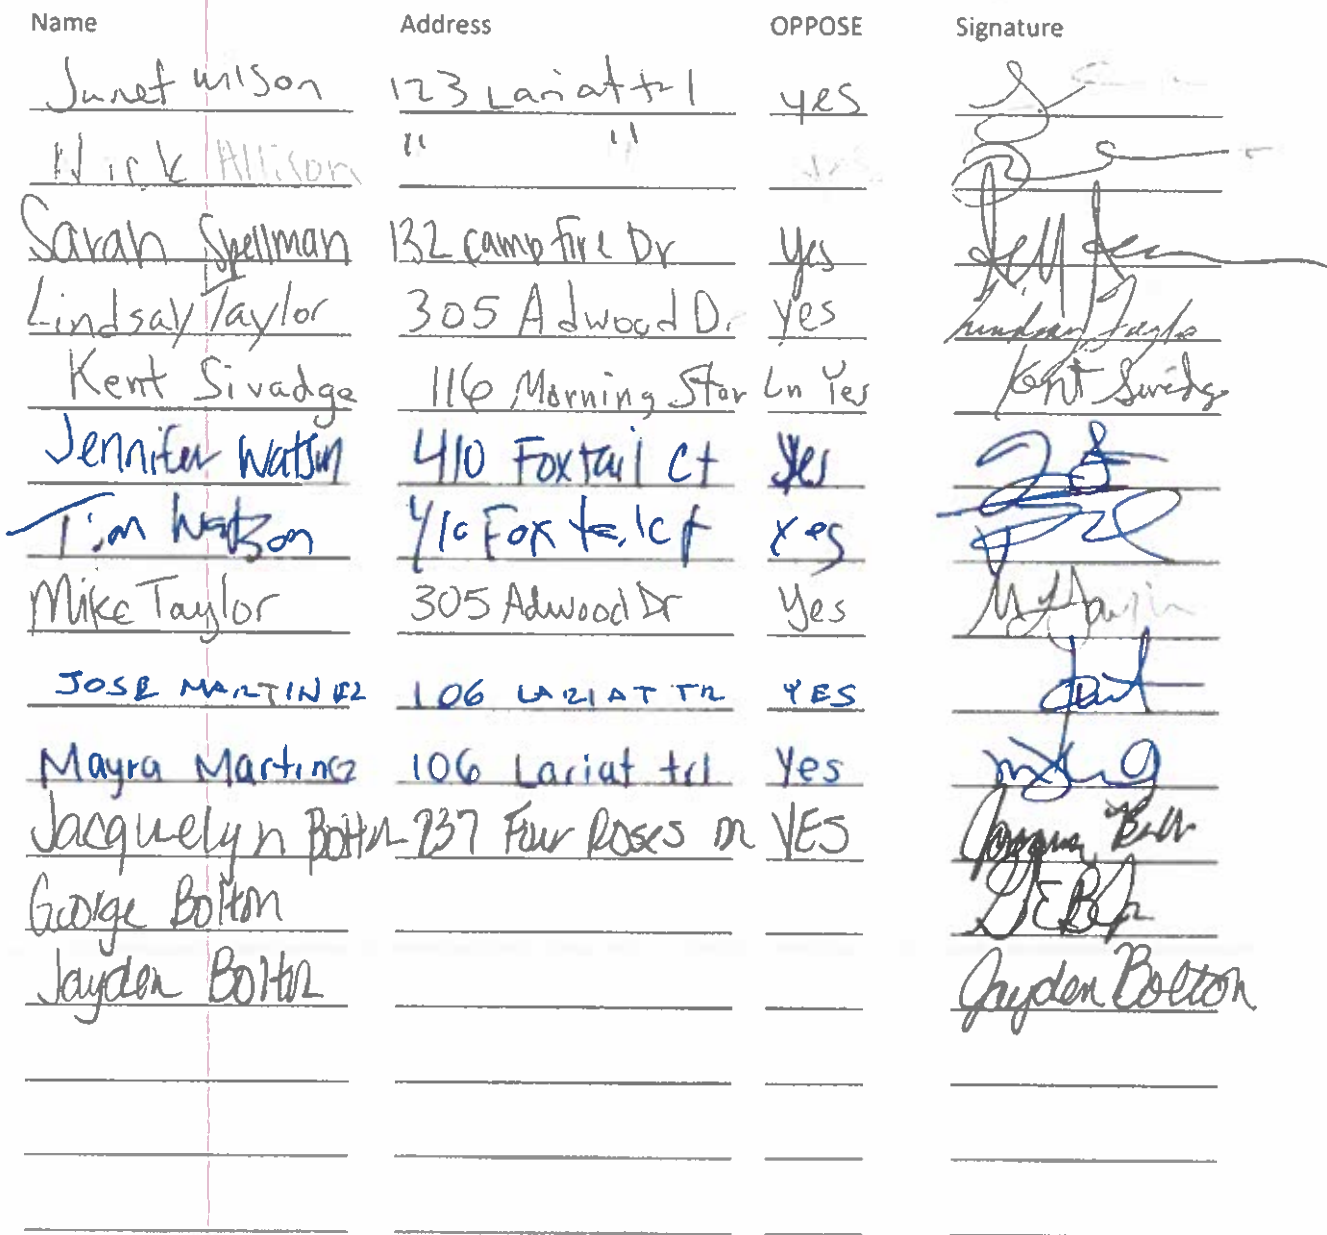 Name Address OPPOSE Signature
Janet Wilson 123 Lariat trl yes
Nick Allison " " yes
Sarah Spellman 132 Campfire Dr Yes
Lindsay Taylor 305 Adwood Dr Yes Lindsay Taylor
Kent Sivadge 116 Morning Star Ln Yes Kent Sivadge
Jennifer Watson 410 Foxtail Ct Yes
Tim Watson 410 Foxtail Ct Yes
Mike Taylor 305 Adwood Dr Yes
JOSE MARTINEZ 106 LARIAT TR YES
Mayra Martinez 106 Lariat trl Yes
Jacquelyn Bolton 237 Four Roses Dr YES
George Bolton
Jayden Bolton Jayden Bolton